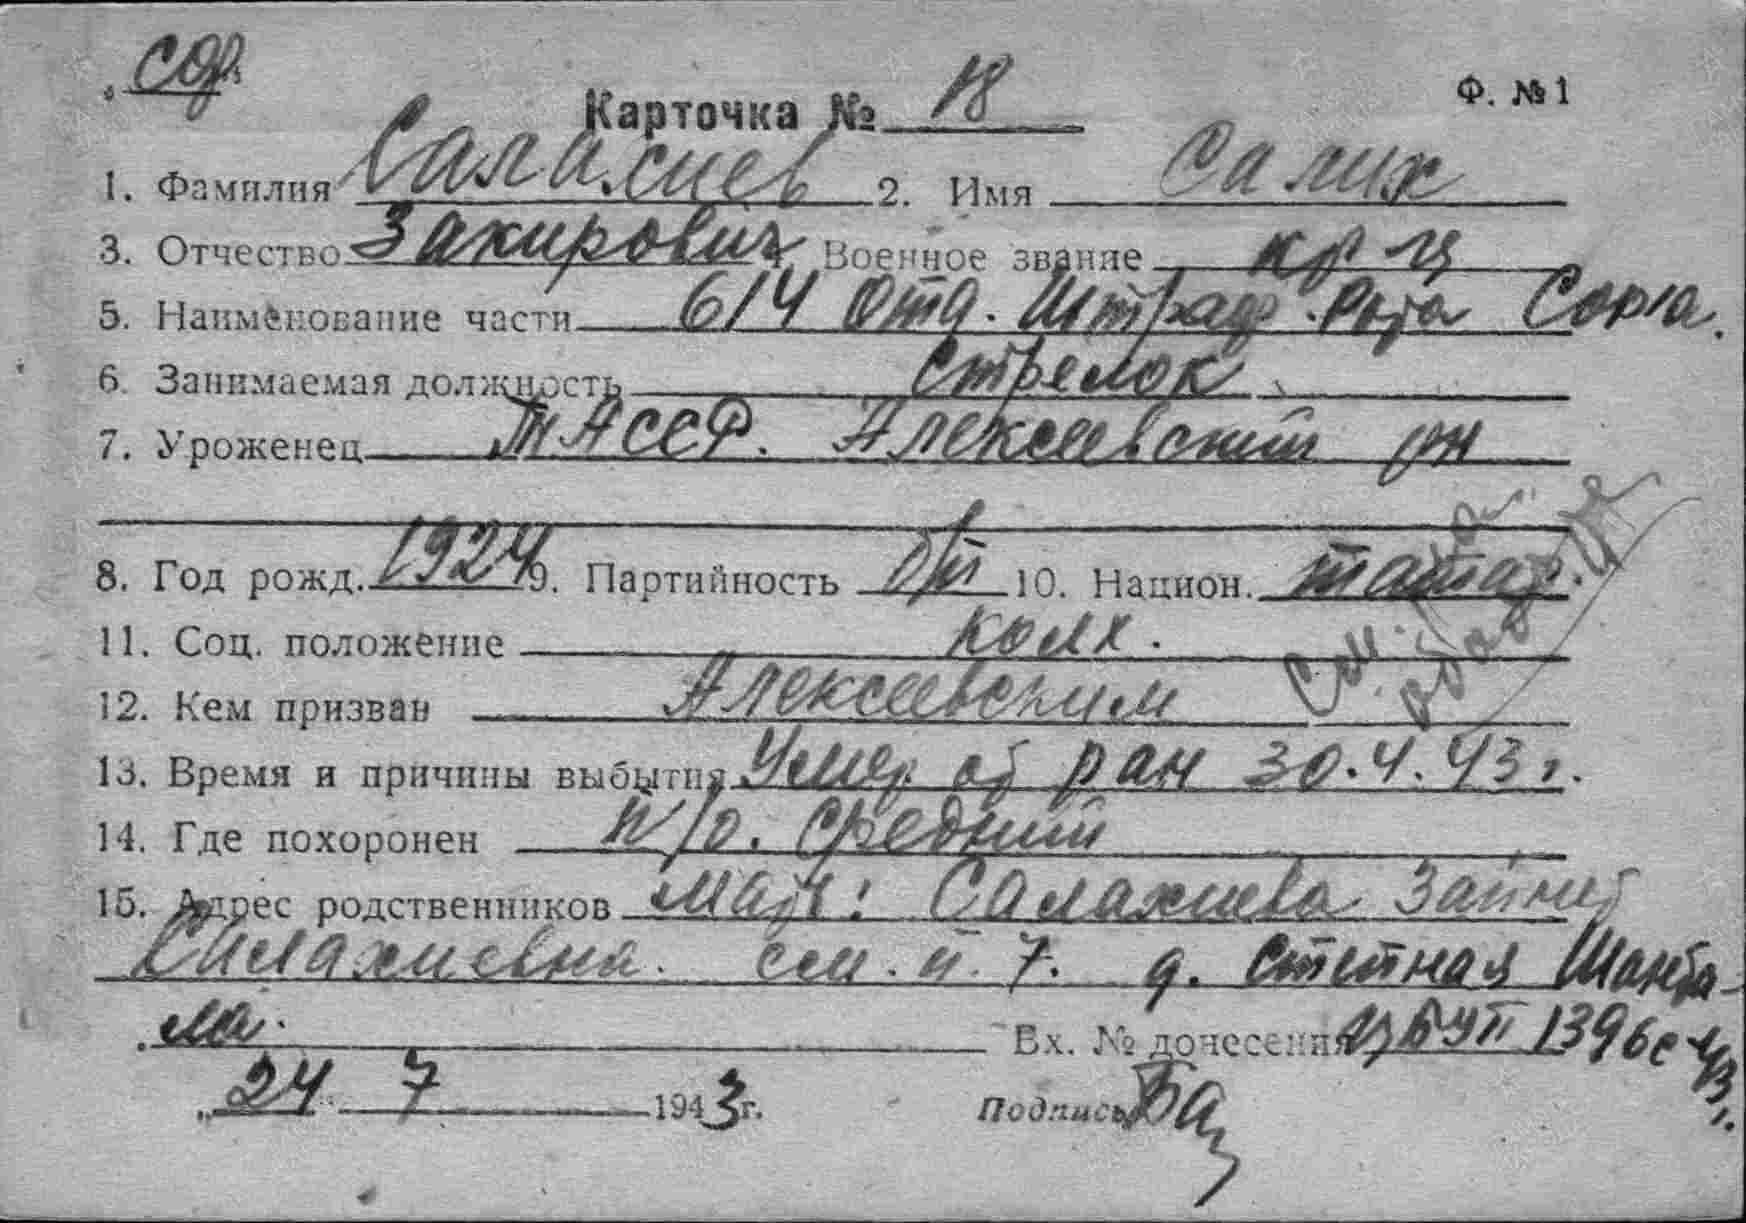 сор.
Карточка № 18 Ф. № 1
1. Фамилия Салахиев 2. Имя Салих
3. Отчество Закирович Военное звание кр-ц
5. Наименование части 614 отд. Штраф. Рота Сор-ла.
6. Занимаемая должность стрелок
7. Уроженец ТАССР. Алексеевский рн
8. Год рожд. 1924 9. Партийность б/п 10. Национ. татар.
11. Соц. положение колх.
12. Кем призван Алексеевским
13. Время и причины выбытия Умер от ран 30.4.43 г.
14. Где похоронен п/о. Средний
15. Адрес родственников мать: Салахиева
Салахиевна. д. Степная Шантала
Вх. № донесения 1396с 43 г.
„24 7 1943 г. Подпись